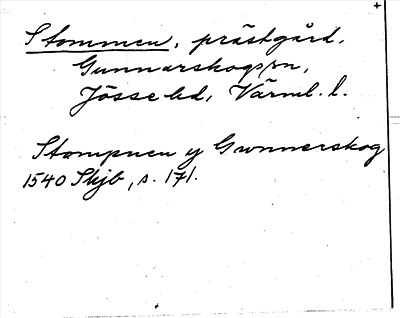 Stommen, prästgård,
Gunnarskogs sn,
Jösse hd, Värml. l.
Stompnen y Gwnnerskog
1540 Skjb, s. 171.